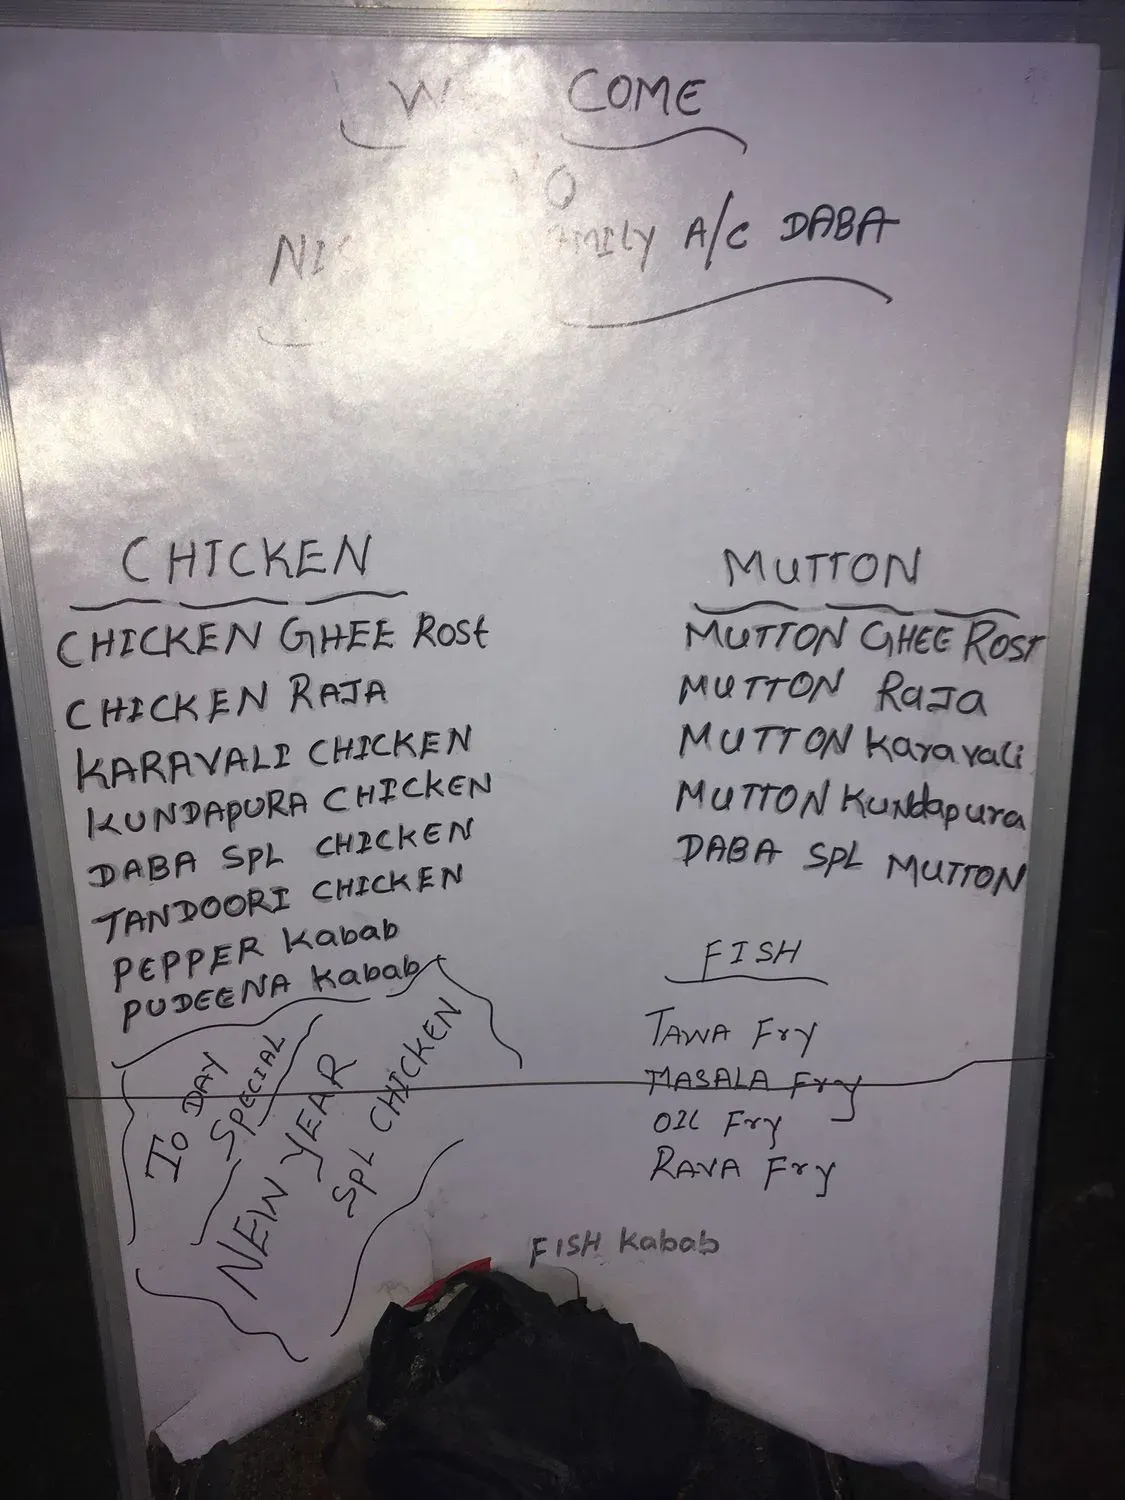 COME
A/C DABA
CHICKEN
CHICKEN GHEE Rost
CHICKEN RAJA
KARAVALI CHICKEN
KUNDAPURA CHICKEN
DABA SPL CHICKEN
TANDOORI CHICKEN
PEPPER Kabab
PUDEENA Kabab
TO DAY
SPECIAL
NEW YEAR
SPL CHICKEN
MUTTON
MUTTON GHEE ROST
MUTTON RaJa
MUTTON Karavali
MUTTON Kundapura
DABA SPL MUTTON
FISH
TAWA Fry
MASALA Fry
OIL Fry
RAVA Fry
FISH Kabab